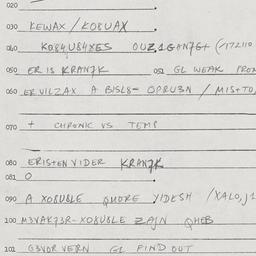 020
030 KEWAX / KO8UAX
040 KO84U84XES OUZ,1GAN7G+ (/172110
050 ER IS KRANJK 051 GL WEAK PROM
060 ERVILZAX A BISL8- OPRU3N / MIS+TO,
070 + CHRONIC VS TEMP
080 ERIS+EN VIDER KRANJK
081 O
090 A XO8U8LE QMORE YIDESH /XALO,J1
100 M3VAK73R-XO8U8LE ZAJN QHEB
101 G3VOR VERN GL FIND OUT